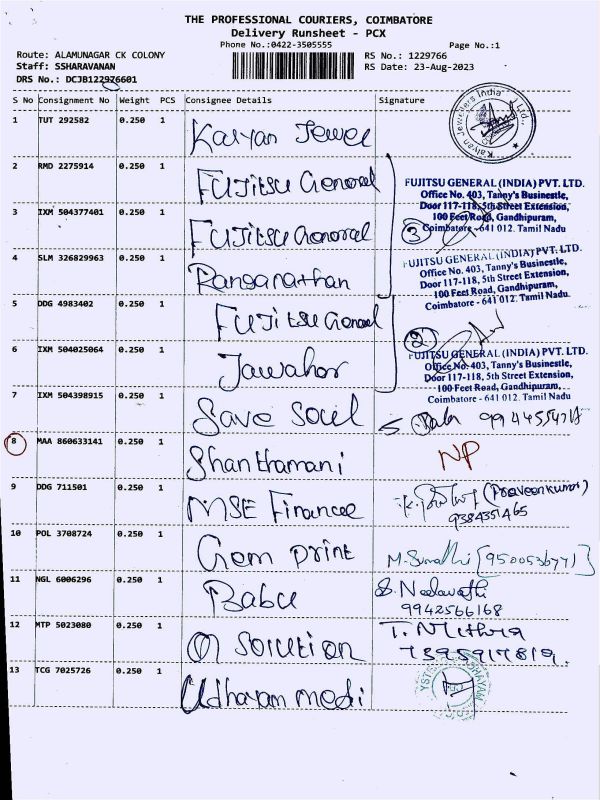 THE PROFESSIONAL COURIERS, COIMBATORE
Delivery Runsheet - PCX
Phone No.:0422-3505555 Page No.:1
Route: ALAMUNAGAR CK COLONY RS No.: 1229766
Staff: SSHARAVANAN RS Date: 23-Aug-2023
DRS No.: DCJB122976601
S No Consignment No Weight PCS Consignee Details Signature
1 TUT 292582 0.250 1 Kalyan Jewel
2 RMD 2275914 0.250 1 FUJITSU General
FUJITSU GENERAL (INDIA) PVT. LTD.
Office No. 403, Tanny's Businestle,
Door 117-118, 5th Street Extension,
100 Feet Road, Gandhipuram,
Coimbatore - 641 012. Tamil Nadu
3 IXM 504377401 0.250 1 FUJITSU General
3
4 SLM 326829963 0.250 1 Ranganathan
FUJITSU GENERAL (INDIA) PVT. LTD.
Office No. 403, Tanny's Businestle,
Door 117-118, 5th Street Extension,
100 Feet Road, Gandhipuram,
Coimbatore - 641 012. Tamil Nadu
5 DDG 4983402 0.250 1 FUJITSU General
2
6 IXM 504025064 0.250 1 Jawahar
FUJITSU GENERAL (INDIA) PVT. LTD.
Office No. 403, Tanny's Businestle,
Door 117-118, 5th Street Extension,
100 Feet Road, Gandhipuram,
Coimbatore - 641 012. Tamil Nadu
7 IXM 504398915 0.250 1 Save Soul
8 MAA 860633141 0.250 1 Shanthamani NP
9 DDG 711501 0.250 1 MSE Finance (Praveenkumar)
9384351465
10 POL 3708724 0.250 1 Gem print M. Sumathi [9500536771]
11 NGL 6006296 0.250 1 Babu S. Neelavathi
9942566168
12 MTP 5023080 0.250 1 M Solution T. Mithra
7395917819.
13 TCG 7025726 0.250 1 Udhayam medi